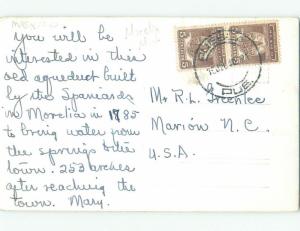 You will be
interested in this
old aqueduct built
by the Spaniards
in Morelia in 1785
to bring water from
the springs into
town. 253 arches
after reaching the
town. Mary.
Mr R.L. Greenlee
Marion N.C.
U.S.A.